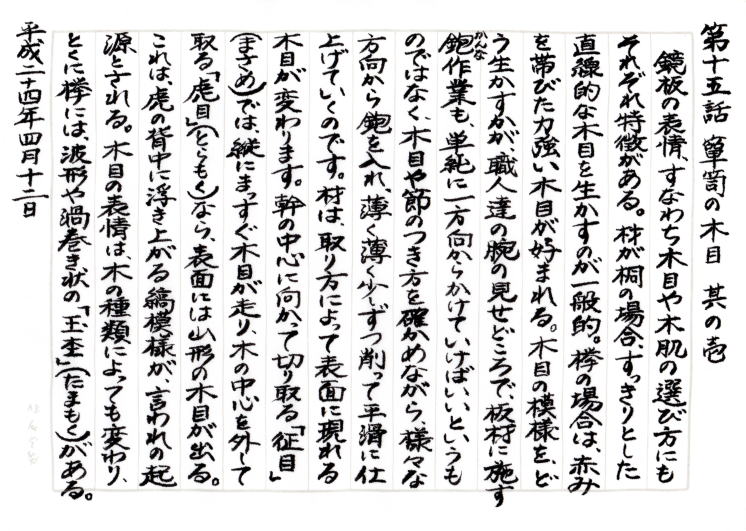 第十五話 箪笥の木目 其の壱
鏡板の表情、すなわち木目や木肌の選び方にも
それぞれ特徴がある。材が桐の場合、すっきりとした
直線的な木目を生かすのが一般的。欅の場合は、赤み
を帯びた力強い木目が好まれる。木目の模様を、ど
う生かすかが、職人達の腕の見せどころで、板材に施す
かんな
鉋作業も、単純に一方向からかけていけばいいというも
のではなく、木目や節のつき方を確かめながら、様々な
方向から鉋を入れ、薄く薄く少しずつ削って平滑に仕
上げていくのです。材は、取り方によって表面に現れる
木目が変わります。幹の中心に向かって切り取る「征目」
(まさめ)では、縦にまっすぐ木目が走り、木の中心を外して
取る「虎目」(とらもく)なら、表面には山形の木目が出る。
これは、虎の背中に浮き上がる縞模様が、言われの起
源とされる。木目の表情は、木の種類によっても変わり、
とくに欅には、波形や渦巻き状の「玉杢」(たまもく)がある。
平成二十四年四月十二日